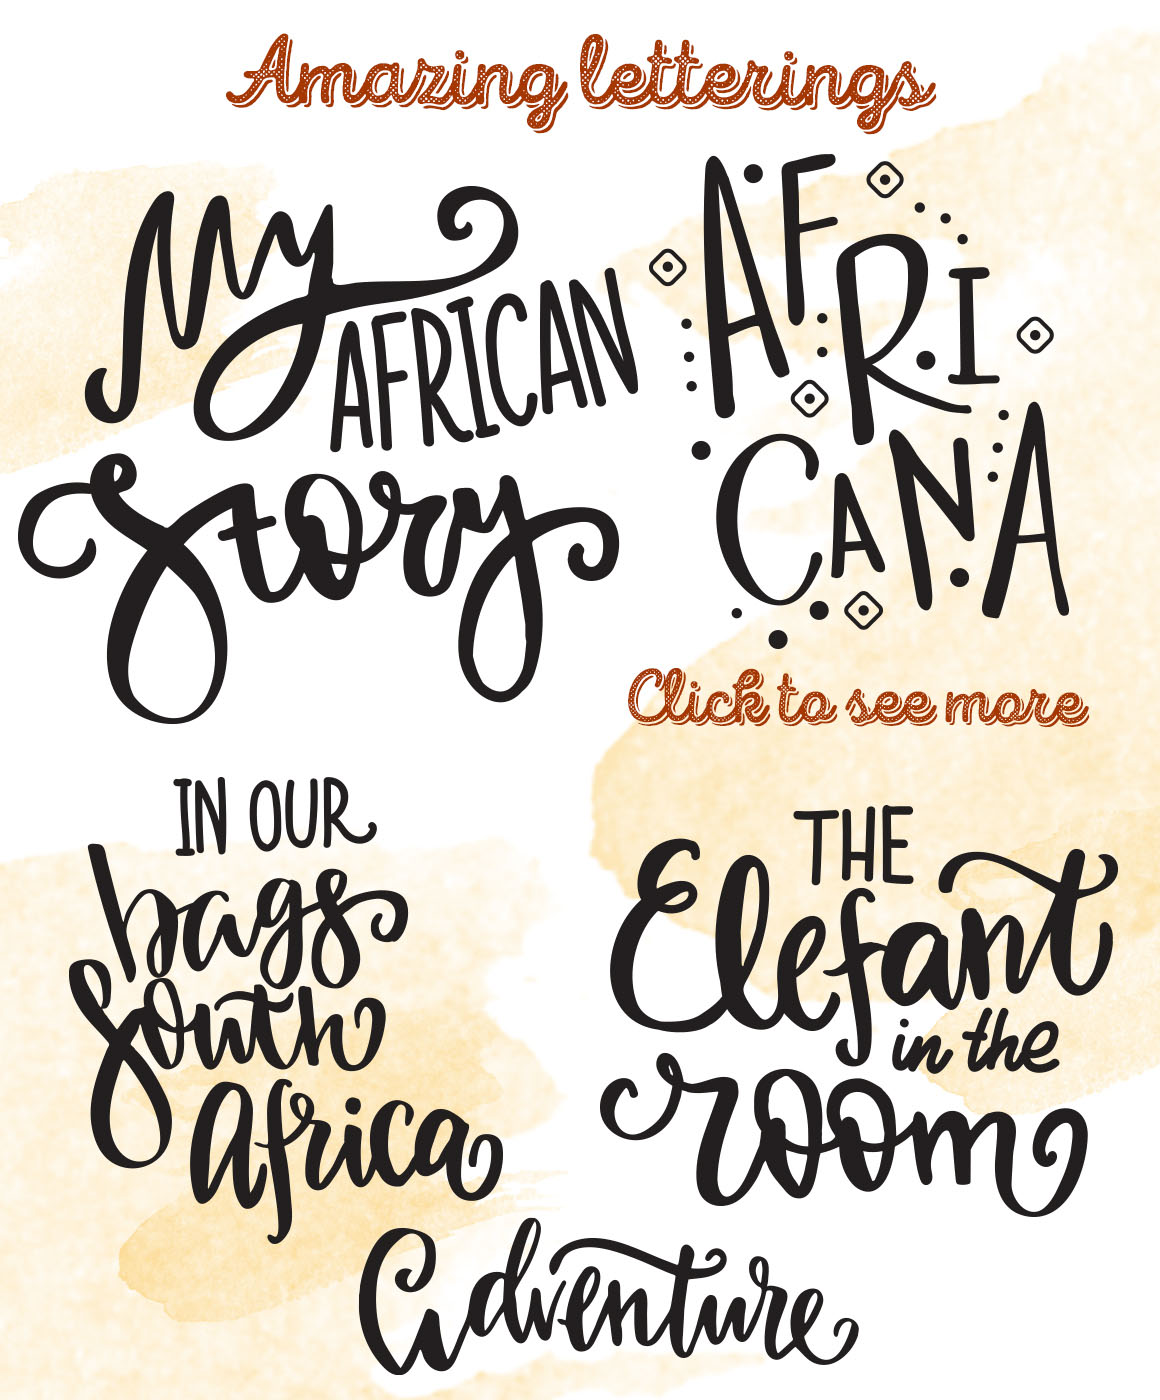 Amazing letterings
My
AFRICAN
Story
AFRI
CANA
Click to see more
IN OUR
bags
South
Africa
THE
Elefant
in the
room
Adventure